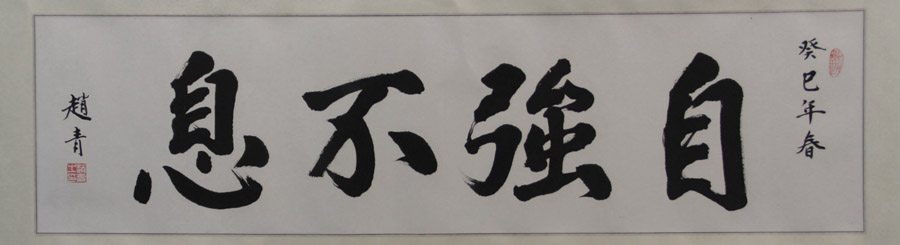 癸巳年春
自強不息
趙青